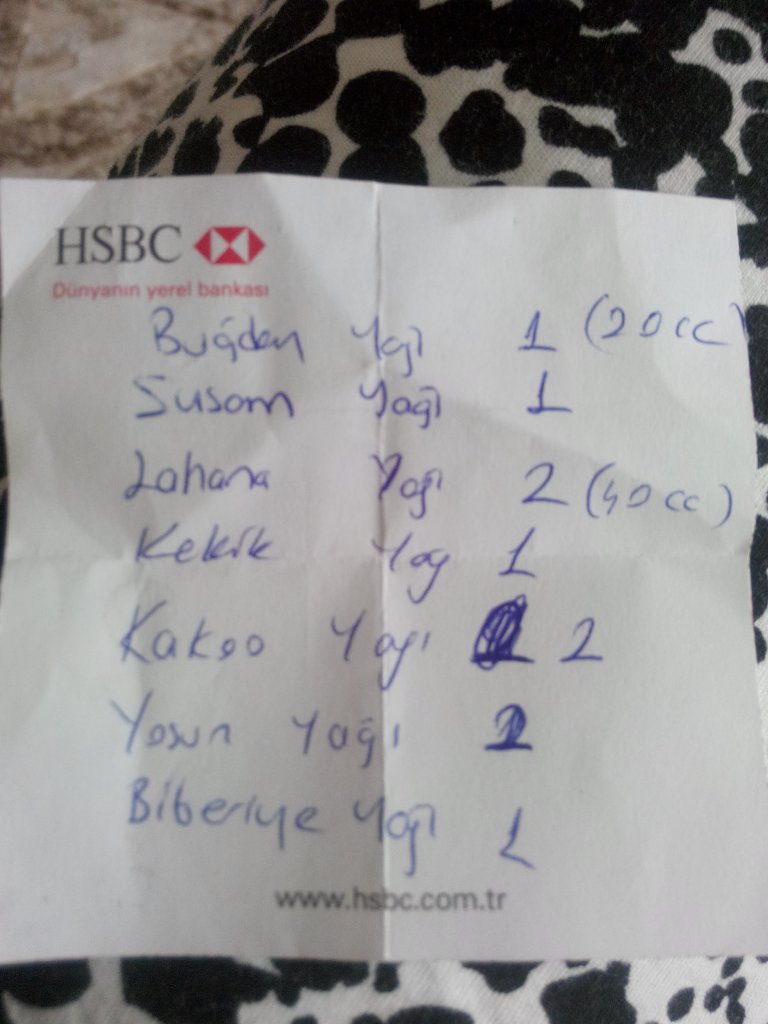 HSBC
Dünyanın yerel bankası
Buğday Yağı 1 (20cc)
Susam Yağı 1
Lahana Yağı 2 (40cc)
Kekik Yağ 1
Kakao Yağı 2
Yosun Yağı
Biberiye Yağı 1
www.hsbc.com.tr